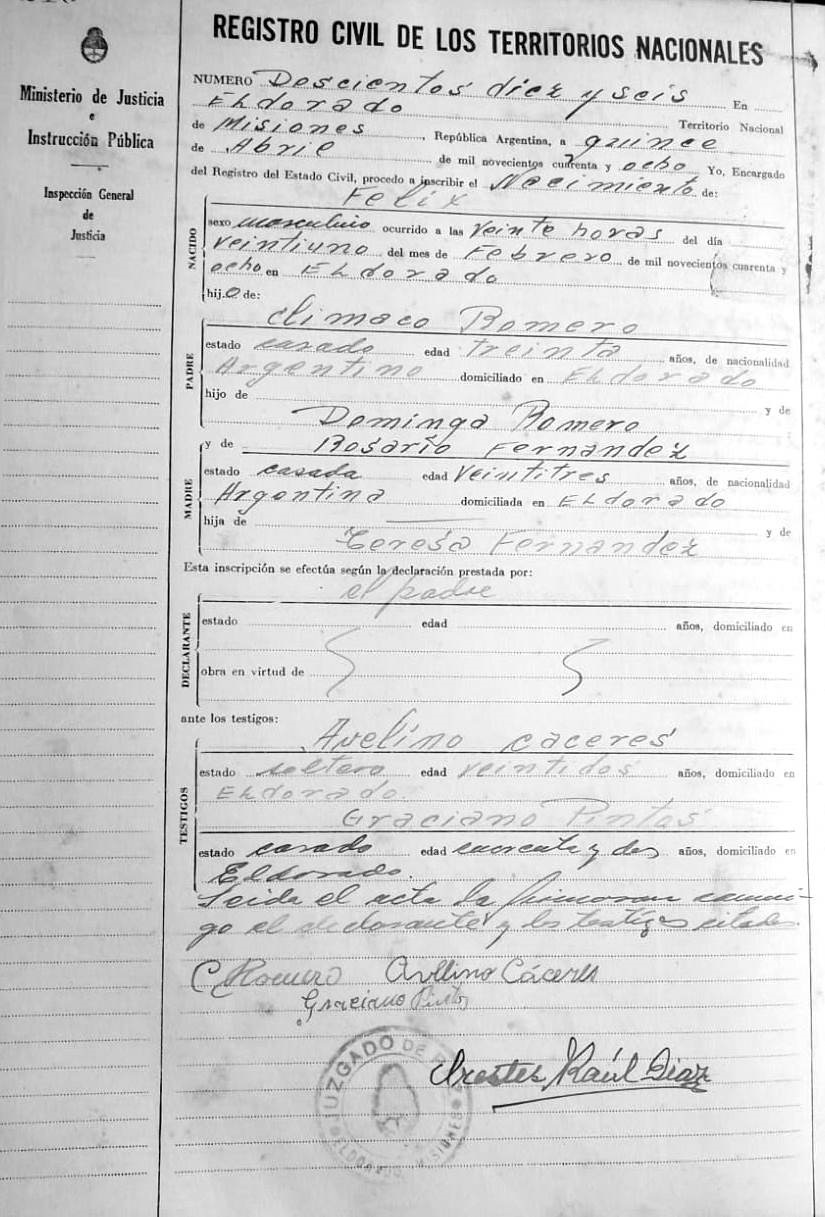 REGISTRO CIVIL DE LOS TERRITORIOS NACIONALES
Ministerio de Justicia
e
Instrucción Pública
Inspección General
de
Justicia
NUMERO Doscientos diez y seis En
Eldorado Territorio Nacional
de Misiones, República Argentina, a quince
de Abril de mil novecientos cuarenta y ocho Yo, Encargado
del Registro del Estado Civil, procedo a inscribir el Nacimiento de:
Felix
NACIDO
sexo masculino ocurrido a las veinte horas del día
veintiuno del mes de Febrero de mil novecientos cuarenta y
ocho en Eldorado
hijo de:
Climaco Romero
PADRE
estado casado edad treinta años, de nacionalidad
Argentino domiciliado en Eldorado
hijo de y de
Dominga Romero
y de Rosario Fernandez
MADRE
estado casada edad Veintitres años, de nacionalidad
Argentina domiciliada en Eldorado
hija de y de
Teresa Fernandez
Esta inscripción se efectúa según la declaración prestada por:
el padre
DECLARANTE
estado edad años, domiciliado en
obra en virtud de
ante los testigos:
Avelino caceres
TESTIGOS
estado soltero edad veintidos años, domiciliado en
Eldorado.
Graciano Pintos
estado casado edad cuarenta y dos años, domiciliado en
Eldorado.
Leida el acta la firmaron conmi-
go el declarante y los testigos citados.
C Romero Avelino Cáceres
Graciano Pintos
Orestes Raúl Diaz
JUZGADO DE
ELDORADO MISIONES